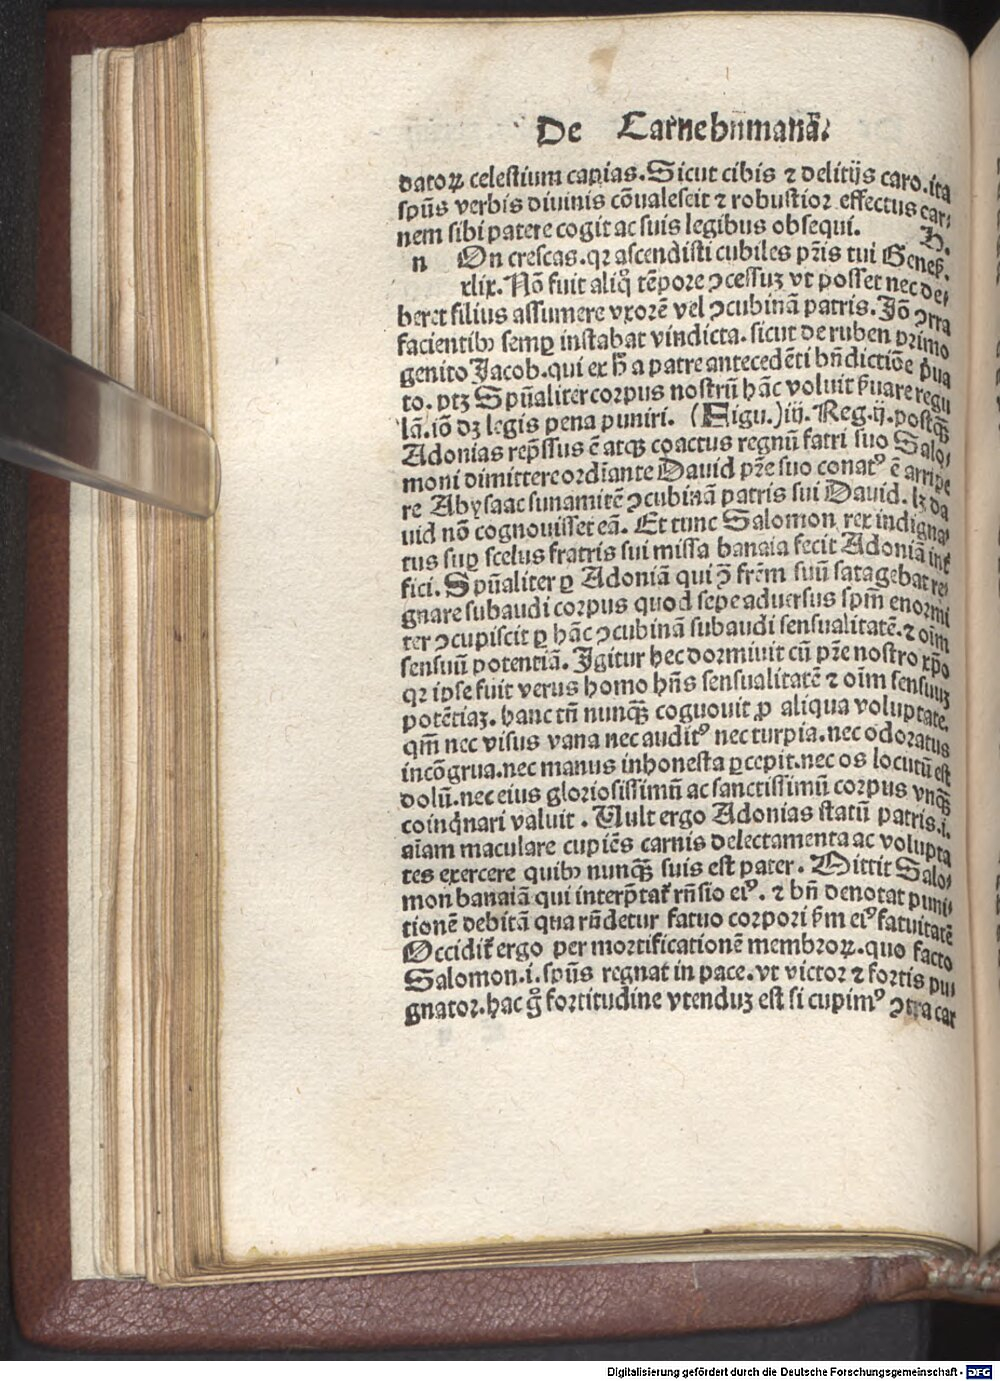 De Carnehūmanā.
datoꝝ celestium capias. Sicut cibis ⁊ delitijs caro. ita
spūs verbis diuinis cōualescit ⁊ robustior effectus car⸗
nem sibi patere cogit ac suis legibus obsequi. H.
n On crescas. qꝛ ascendisti cubiles pr̄is tui Geneß.
xlix. Nō fuit aliqͦ tēpore ꝯcessuꝫ vt posset nec de⸗
beret filius assumere vxorē vel ꝯcubinā patris. Iō ꝯtra
facientibꝰ semꝑ instabat vindicta. sicut de ruben primo
genito Jacob. qui ex h̄ a patre antecedēti bn̄dictiōe p̄ua
to. ptꝫ Spūaliter corpus nostrū hāc voluit p̄uare regu
lā. iō dꝫ legis pena puniri. (Figu.) iij. Reg. ij. postqꝫ̄
Adonias rep̄ssus ē atqꝫ coactus regnū fatri suo Salo⸗
moni dimittere ordīante Dauid pr̄e suo conatꝰ ē arripe
re Abysaac sunamitē ꝯcubinā patris sui Dauid. lꝫ da
uid nō cognouisset eā. Et tunc Salomon rex indigna⸗
tus suꝑ scelus fratris sui missa banaia fecit Adoniā int̄
fici. Spūaliter ꝑ Adoniā qui ꝯ̄ frēm suū satagebat re⸗
gnare subaudi corpus quod sepe aduersus spm̄ enormi
ter ꝯcupiscit ꝑ hāc ꝯcubinā subaudi sensualitatē. ⁊ oīm
sensuū potentiā. Igitur hec dormiuit cū pr̄e nostro xp̄o
qꝛ ipse fuit verus homo hn̄s sensualitatē ⁊ oīm sensuuꝫ
potētiaꝫ. hanc tn̄ nunqꝫ̄ coguouit ꝓ aliqua voluptate.
qm̄ nec visus vana nec auditꝰ nec turpia. nec odoratus
incōgrua. nec manus inhonesta ꝑcepit. nec os locutū est
dolū. nec eius gloriosissimū ac sanctissimū corpus vnqꝫ̄
coinq̄nari valuit. Uult ergo Adonias statū patris. i.
aīam maculare cupiēs carnis delectamenta ac volupta
tes exercere quibꝰ nunqꝫ̄ suis est pater. Mittit Salo⸗
mon banaiā qui interp̄tat̄ rn̄sio eiꝰ. ⁊ bn̄ denotat puni⸗
tionē debitā qua rn̄detur fatuo corpori ẜm eiꝰ fatuitatē
Occidit̄ ergo per mortificationē membroꝝ. quo facto
Salomon. i. spūs regnat in pace. vt victor ⁊ fortis pu⸗
gnator. hac gͦ fortitudine vtenduꝫ est si cupimꝰ ꝯtra car
Digitalisierung gefördert durch die Deutsche Forschungsgemeinschaft - DFG